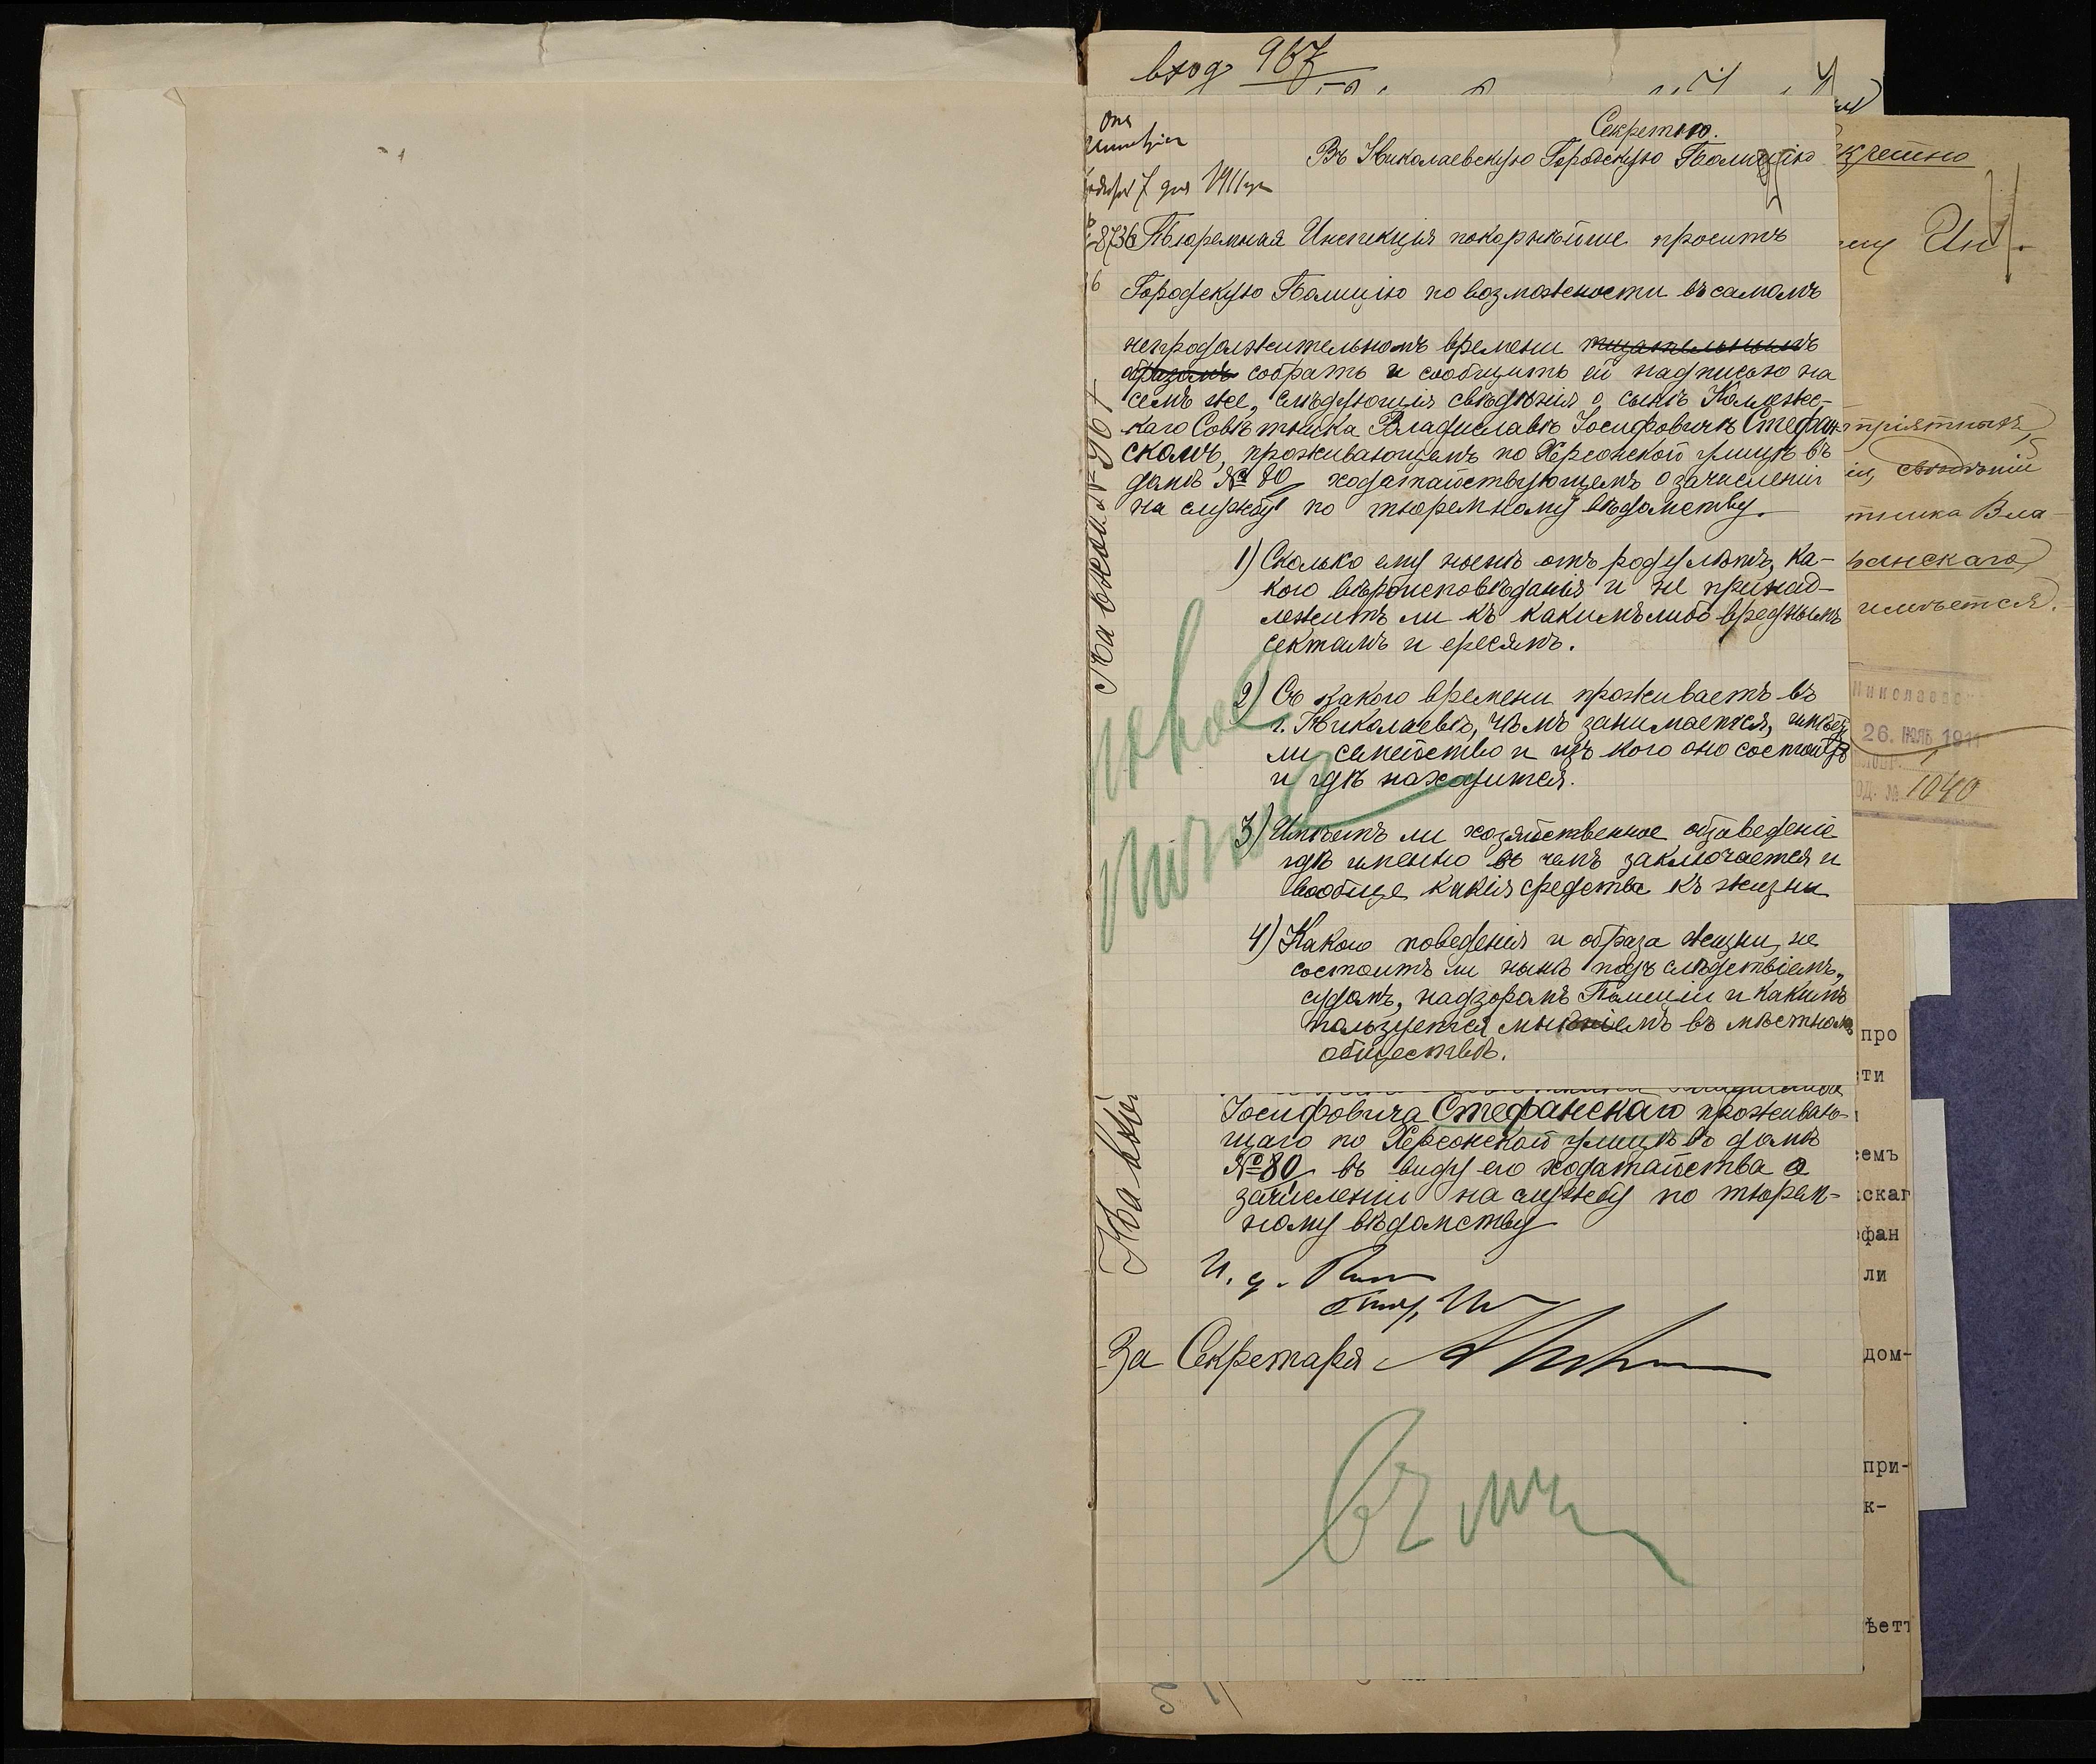 вход 967
Секретно.
Въ Николаевскую Городскую Полицію
7 дня 1911 г.
8736 Тюремная Инспекція покорнѣйше проситъ
Городскую Полицію по возможности въ самомъ
непродолжительномъ времени тщательнымъ
образомъ собрать и сообщить ей надписью на
семъ же, слѣдующія свѣдѣнія о сынѣ Коллежс-
каго Совѣтника Владиславѣ Іосифовичѣ Стефан-
скомъ, проживающемъ по Херсонской улицѣ въ
домѣ № 80, ходатайствующемъ о зачисленіи
на службу по тюремному вѣдомству.
1) Сколько ему нынѣ отъ роду лѣтъ, ка-
кого вѣроисповѣданія и не принад-
лежитъ ли къ какимъ либо вреднымъ
сектамъ и ересямъ.
2) Съ какого времени проживаетъ въ
г. Николаевѣ, чѣмъ занимается, имѣет
ли семейство и изъ кого оно состоитъ
и гдѣ находится.
3) Имѣетъ ли хозяйственное обзаведеніе
гдѣ именно въ чемъ заключается и
вообще какія средства къ жизни
4) Какого поведенія и образа жизни, не
состоитъ ли нынѣ подъ слѣдствіемъ,
судомъ, надзоромъ Полиціи и какимъ
пользуется мнѣніемъ въ мѣстномъ
обществѣ.
Іосифовича Стефанскаго проживаю-
щаго по Херсонской улицѣ въ домѣ
№ 80, въ виду его ходатайства о
зачисленіи на службу по тюрем-
ному вѣдомству
И. д.
За Секретаря
На
кретно
Ин.
тріятныхъ,
ія, свѣдѣніи
тника Вла-
фанскаго
имѣется.
Николаевс
26. ІЮЛЬ 1911
ОД. № 1040
про
сти
семъ
скаг
фан
ли
дом-
при-
к-
ѣетъ